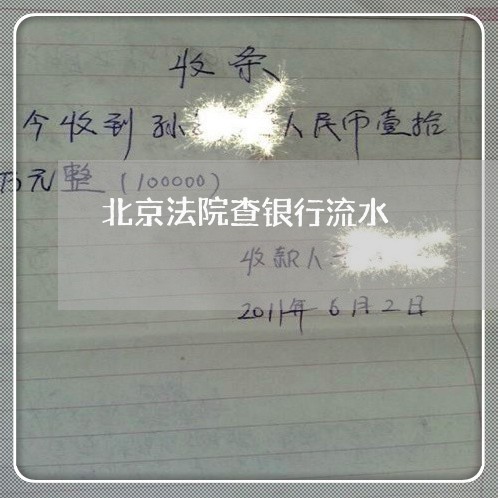 收条
今收到孙 人民币壹拾
万元整(100000)
北京法院查银行流水
收款人
2011年6月2日